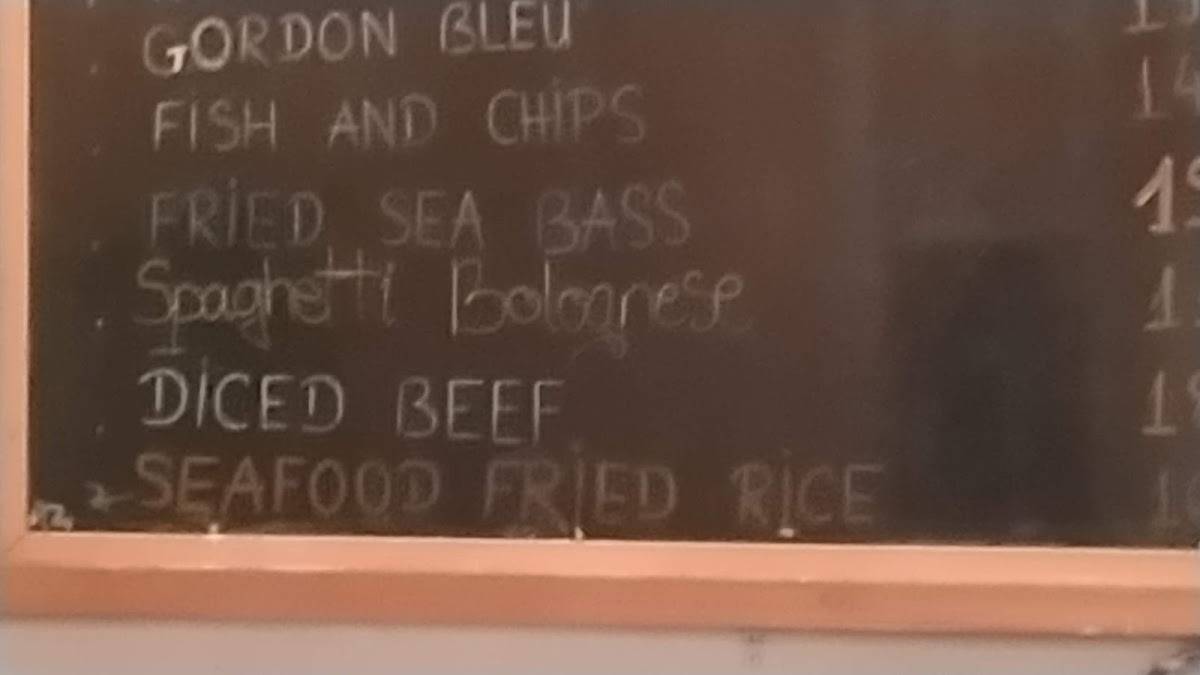 GORDON BLEU
FISH AND CHIPS 14
FRIED SEA BASS
Spaghetti Bolognese
DICED BEEF
SEAFOOD FRIED RICE